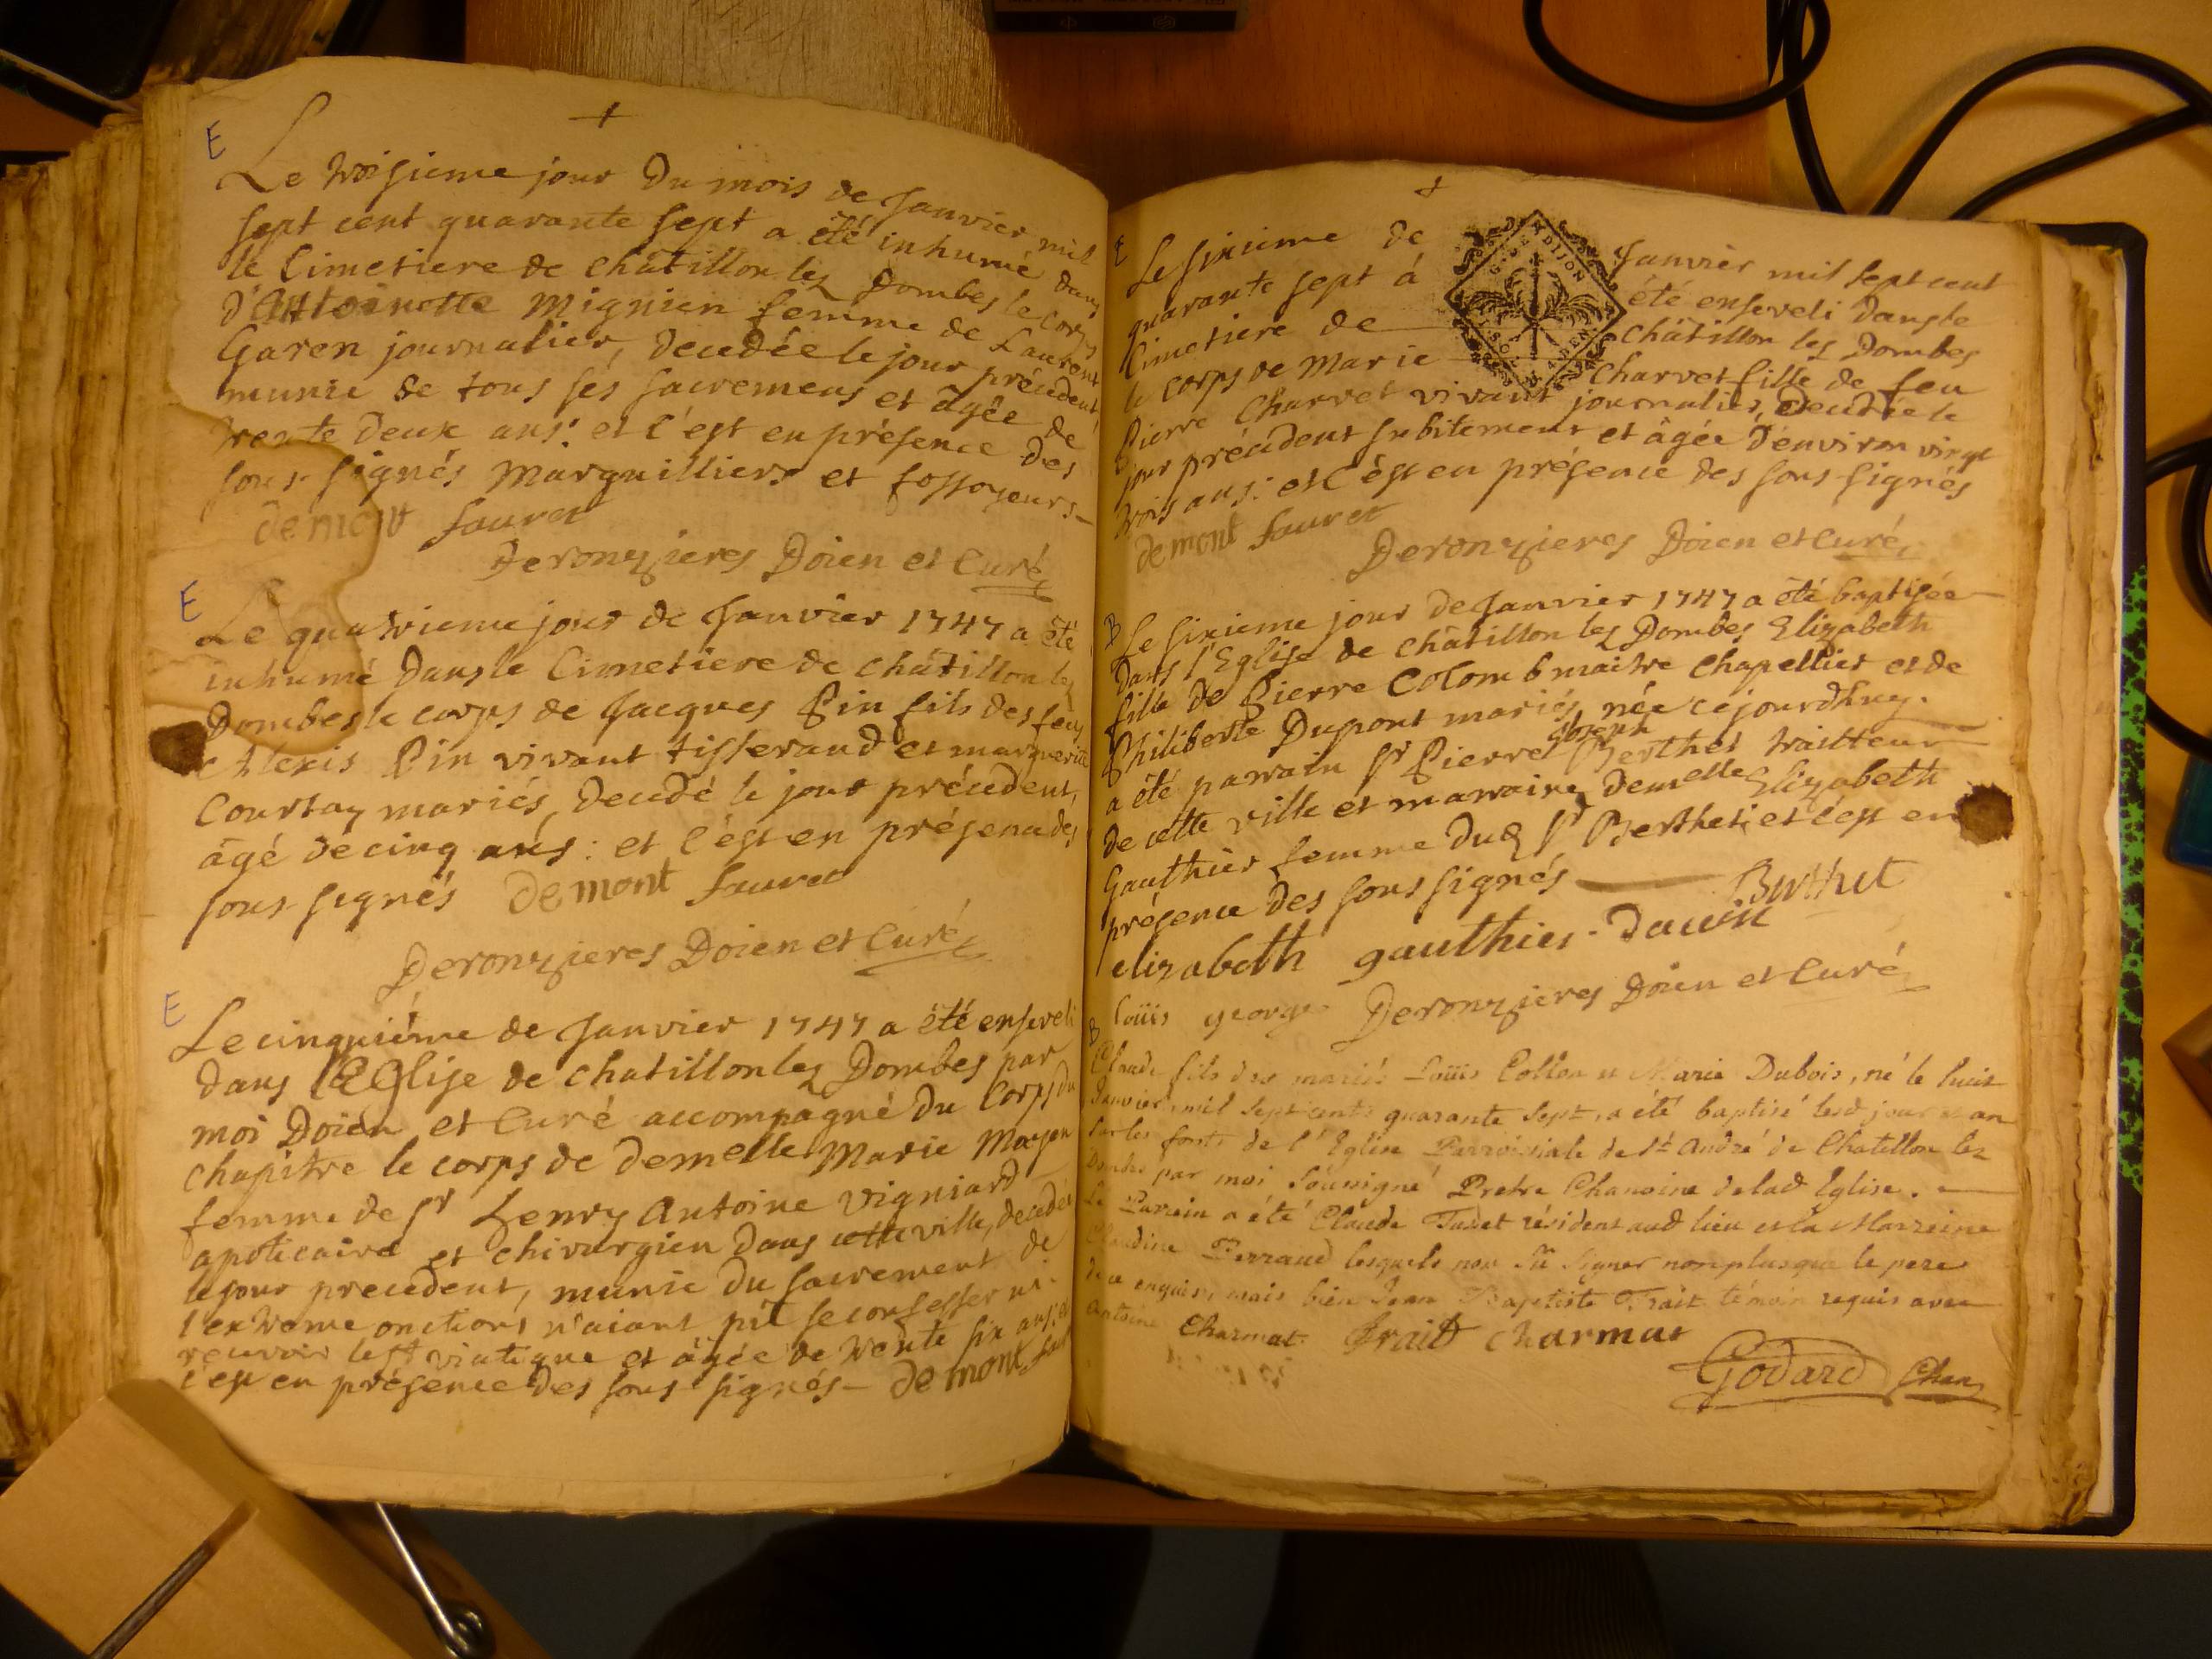 E
Le troisieme jour Du mois de Janvier mil
sept cent quarante sept a été inhumé dans
le Cimetiere de châtillon les Dombes le corps
d'Antoinette Mignien femme de Laurent
Garen journalier, decedée le jour précedent
munie de tous ses sacremens et âgée de
trente deux ans: et c'est en présence des
sous signés Marguilliers et fossoyeurs
demont fauret
Deronzieres Doien et Curé
E
Le quatrieme jour de Janvier 1747 a été
inhumé Dans le Cimetiere de châtillon les
Dombes le corps de Jacques Pin fils des feus
Alexis Pin vivant tisserand et marguerite
Courtay mariés, Decedé le jour précedent,
âgé de cinq ans: et c'est en présence des
sous signés demont fauret
Deronzieres Doien et Curé
E
Le cinquiéme de Janvier 1747 a été enseveli
dans l'EGlise de chatillon les Dombes par
moi Doien et Curé accompagné du Corps du
chapitre le corps de demelle Marie Moyen
femme de Sr Henry Antoine Vigniard
apoticaire et chirurgien dans cette ville, decedée
le jour precedent, munie du sacrement de
l'extreme onction, n'aiant pû se confesser ni
recevoir le St viatique et âgée de trente six ans: et
c'est en présence des sous signés demont
E
Le sixieme de Janvier mil sept cent
quarante sept à été enseveli Dans le
Cimetiere de châtillon les Dombes
le corps de Marie Charvet fille de feu
Pierre Charvet vivant journalier, Decedée le
jour précedent subitement et âgée d'environ vingt
trois ans: et c'est en présence des sous signés
demont fauret
Deronzieres Doien et Curé
G. DE DIJON
B
Le sixieme jour de Janvier 1747 a été baptisée
Dans l'Eglise de châtillon les Dombes Elizabeth
fille de Pierre Colomb maitre Chapellier et de
Philiberte Dupont mariés, née cejourdhuy.
a été parrain Sr Pierre Joseph Berthet traitteur
de cette ville et marraine demelle Elizabeth
Gauthier femme dud Sr Berthet; et c'est en
présence des sous signés Berthet
elizabeth gauthier
loüis george Deronzieres Doien et Curé
B
Claude fils des mariés Loüis Collon et Marie Dubois, né le huit
Janvier mil sept cents quarante sept, a été baptisé lesd jour et an
sur les fonts de l'Eglise Parroissiale de St André de Chatillon lez
Dombes par moi Soussigné Pretre Chanoine de lad Eglise.
Le Parrein a été Claude Tudet résident aud lieu et la Marreine
Claudine Perraud lesquels non Sû Signer nonplusque le pere
de ce enquis, mais bien Jean Baptiste Frait témoin requis avec
Antoine Charmat. frait charmat
Godard Chan